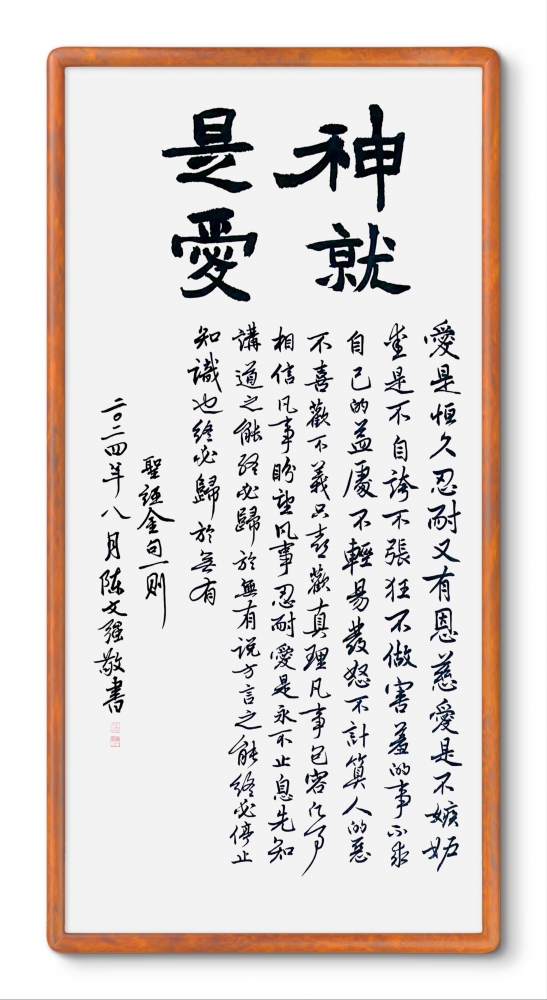 神就
是愛
愛是恒久忍耐又有恩慈愛是不嫉妒
愛是不自誇不張狂不做害羞的事不求
自己的益處不輕易發怒不計算人的惡
不喜歡不義只喜歡真理凡事包容凡事
相信凡事盼望凡事忍耐愛是永不止息先知
講道之能終必歸於無有说方言之能終必停止
知識也終必歸於无有
聖經金句一則
二〇二四年八月陈文强敬書